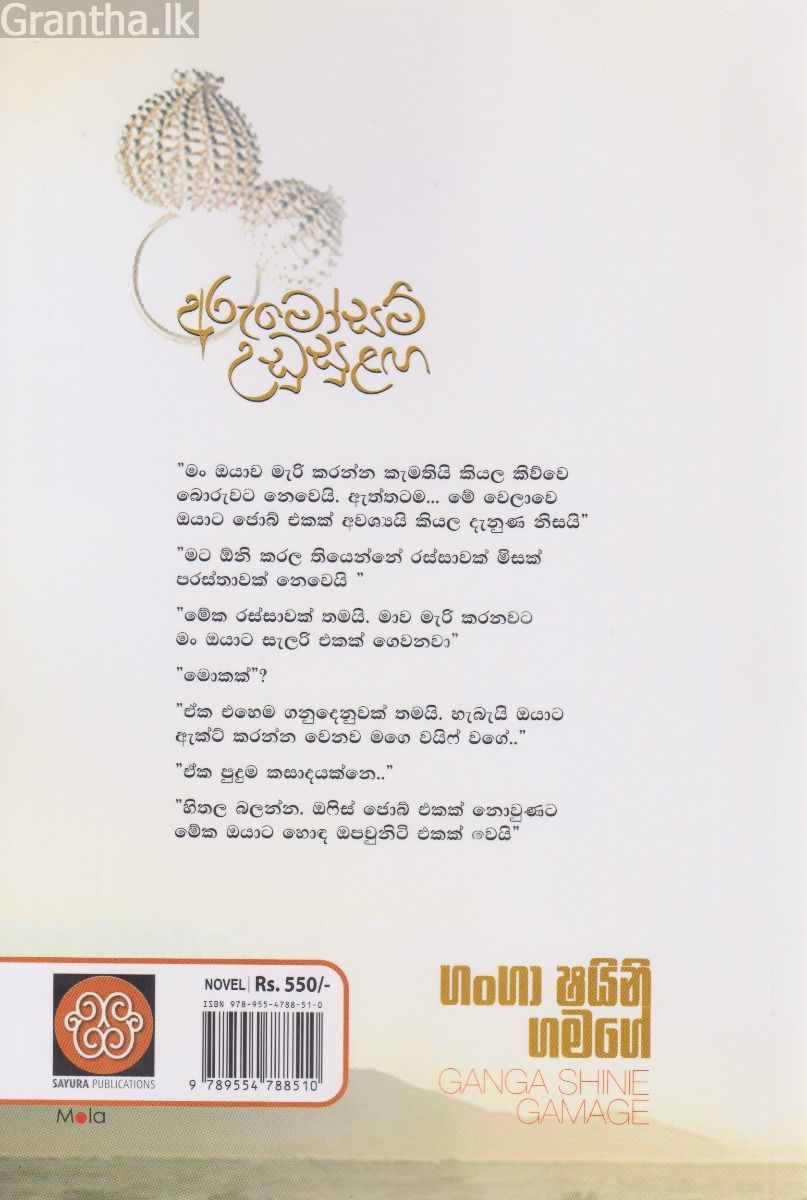 Grantha.lk
අරුමෝසම්
උඩුසුළඟ
"මං ඔයාව මැරි කරන්න කැමතියි කියල කිව්වෙ
බොරුවට නෙවෙයි. ඇත්තටම... මේ වෙලාවෙ
ඔයාට ජොබ් එකක් අවශ්‍යයි කියල දැනුණ නිසයි"
"මට ඕනි කරල තියෙන්නේ රස්සාවක් මිසක්
පරස්තාවක් නෙවෙයි "
"මේක රස්සාවක් තමයි. මාව මැරි කරනවට
මං ඔයාට සැලරි එකක් ගෙවනවා"
"මොකක්"?
"ඒක එහෙම ගනුදෙනුවක් තමයි. හැබැයි ඔයාට
ඇක්ට් කරන්න වෙනව මගෙ වයිෆ් වගේ.."
"ඒක පුදුම කසාදයක්නෙ.."
"හිතල බලන්න. ඔෆිස් ජොබ් එකක් නොවුණට
මේක ඔයාට හොඳ ඔපචුනිටි එකක් වෙයි"
NOVEL | Rs. 550/-
ISBN 978-955-4788-51-0
9 789554 788510
SAYURA PUBLICATIONS
Mola
ගංගා ෂයිනි
ගමගේ
GANGA SHINIE
GAMAGE